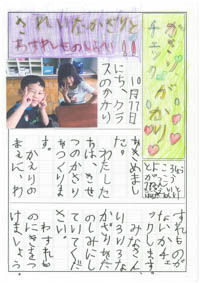 かざりチェックがかり
きれいなかざりと
わすれものしらべ!!
10月17日
にち、クラ
スのかかり
をきめまし
た。
ちは、きせ
つのかざり
をつくりま
す。
かえりの
まえに、わ
すれものが
ないかチェ
ックします。
みなさん、
いろいろな
かざりをた
のしみにし
ていてくだ
さい。
わすれも
のにきをつ
けましょう。